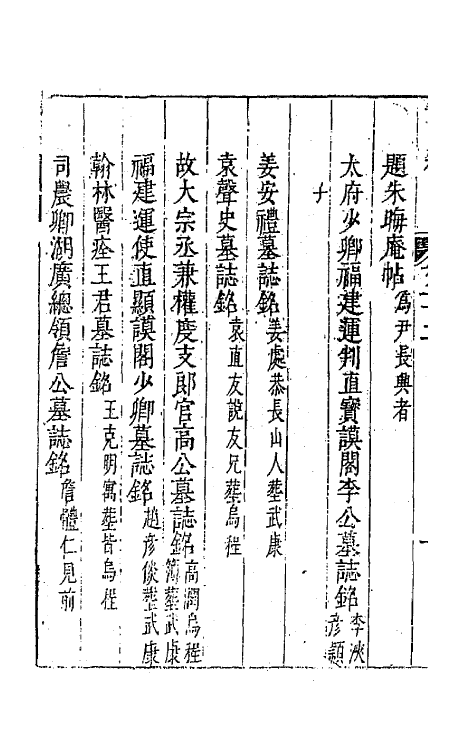 題朱晦庵帖為尹長興者
太府少卿福建運判直寶謨閣李公墓誌銘李浹彥穎
子
姜安禮墓誌銘姜處恭長山人葬武康
袁聲史墓誌銘袁直友說友兄葬烏程
故大宗丞兼權度支郎官高公墓誌銘高凋烏程簿葬武康
福建運使直顯謨閣少卿墓誌銘趙彥倓葬武康
翰林醫痊王君墓誌銘王克明寓葬皆烏程
司農卿湖廣總領詹公墓誌銘詹體仁見前